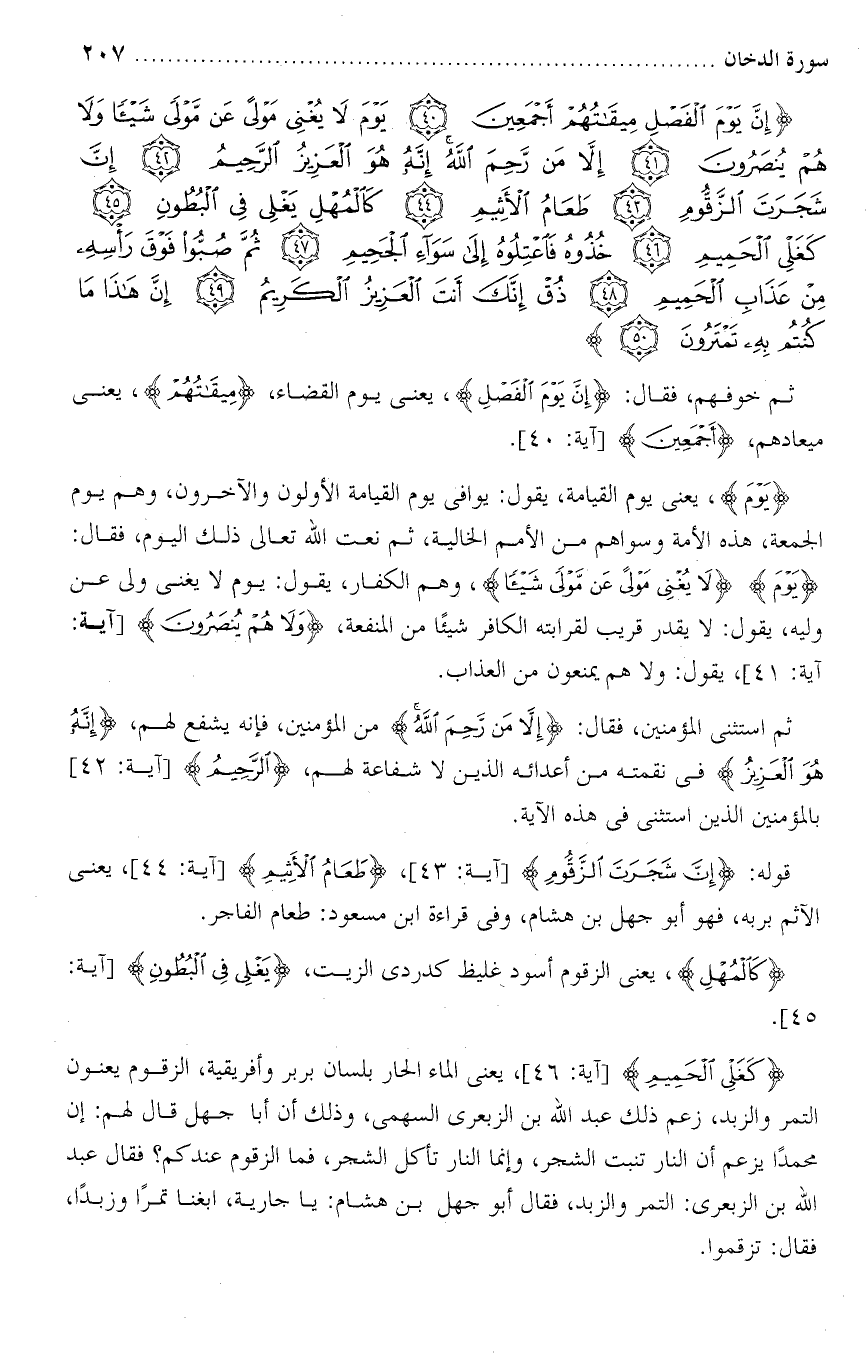 سورة الدخان ........................................................................ ٢٠٧
﴿ إِنَّ يَوْمَ ٱلْفَصْلِ مِيقَٰتُهُمْ أَجْمَعِينَ ﴿٤٠﴾ يَوْمَ لَا يُغْنِى مَوْلًى عَن مَّوْلًى شَيْـًٔا وَلَا
هُمْ يُنصَرُونَ ﴿٤١﴾ إِلَّا مَن رَّحِمَ ٱللَّهُ ۚ إِنَّهُۥ هُوَ ٱلْعَزِيزُ ٱلرَّحِيمُ ﴿٤٢﴾ إِنَّ
شَجَرَتَ ٱلزَّقُّومِ ﴿٤٣﴾ طَعَامُ ٱلْأَثِيمِ ﴿٤٤﴾ كَٱلْمُهْلِ يَغْلِى فِى ٱلْبُطُونِ ﴿٤٥﴾
كَغَلْىِ ٱلْحَمِيمِ ﴿٤٦﴾ خُذُوهُ فَٱعْتِلُوهُ إِلَىٰ سَوَآءِ ٱلْجَحِيمِ ﴿٤٧﴾ ثُمَّ صُبُّوا۟ فَوْقَ رَأْسِهِۦ
مِنْ عَذَابِ ٱلْحَمِيمِ ﴿٤٨﴾ ذُقْ إِنَّكَ أَنتَ ٱلْعَزِيزُ ٱلْكَرِيمُ ﴿٤٩﴾ إِنَّ هَٰذَا مَا
كُنتُم بِهِۦ تَمْتَرُونَ ﴿٥٠﴾ ﴾
ثم خوفهم، فقال: ﴿إِنَّ يَوْمَ ٱلْفَصْلِ﴾، يعنى يوم القضاء، ﴿مِيقَٰتُهُمْ﴾، يعنى
ميعادهم، ﴿أَجْمَعِينَ﴾ [آية: ٤٠].
﴿يَوْمَ﴾، يعنى يوم القيامة، يقول: يوافى يوم القيامة الأولون والآخرون، وهم يوم
الجمعة، هذه الأمة وسواهم من الأمم الخالية، ثم نعت الله تعالى ذلك اليوم، فقال:
﴿يَوْمَ﴾ ﴿لَا يُغْنِى مَوْلًى عَن مَّوْلًى شَيْـًٔا﴾، وهم الكفار، يقول: يوم لا يغنى ولى عن
وليه، يقول: لا يقدر قريب لقرابته الكافر شيئًا من المنفعة، ﴿وَلَا هُمْ يُنصَرُونَ﴾ [آية:
آية: ٤١]، يقول: ولا هم يمنعون من العذاب.
ثم استثنى المؤمنين، فقال: ﴿إِلَّا مَن رَّحِمَ ٱللَّهُ ۚ﴾ من المؤمنين، فإنه يشفع لهم، ﴿إِنَّهُۥ
هُوَ ٱلْعَزِيزُ﴾ فى نقمته من أعدائه الذين لا شفاعة لهم، ﴿ٱلرَّحِيمُ﴾ [آية: ٤٢]
بالمؤمنين الذين استثنى فى هذه الآية.
قوله: ﴿إِنَّ شَجَرَتَ ٱلزَّقُّومِ﴾ [آية: ٤٣]، ﴿طَعَامُ ٱلْأَثِيمِ﴾ [آية: ٤٤]، يعنى
الآثم بربه، فهو أبو جهل بن هشام، وفى قراءة ابن مسعود: طعام الفاجر.
﴿كَٱلْمُهْلِ﴾، يعنى الزقوم أسود غليظ كدردى الزيت، ﴿يَغْلِى فِى ٱلْبُطُونِ﴾ [آية:
٤٥].
﴿كَغَلْىِ ٱلْحَمِيمِ﴾ [آية: ٤٦]، يعنى الماء الحار بلسان بربر وأفريقية، الزقوم يعنون
التمر والزبد، زعم ذلك عبد الله بن الزبعرى السهمى، وذلك أن أبا جهل قال لهم: إن
محمدًا يزعم أن النار تنبت الشجر، وإنما النار تأكل الشجر، فما الزقوم عندكم؟ فقال عبد
الله بن الزبعرى: التمر والزبد، فقال أبو جهل بن هشام: يا جارية، ابغنا تمرًا وزبدًا،
فقال: تزقموا.